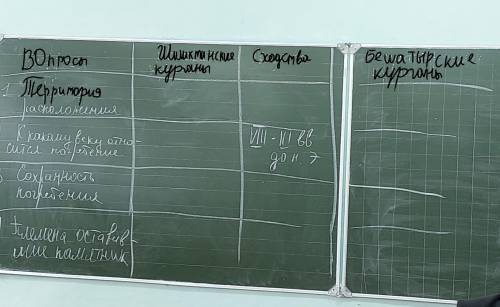 Вопросы
Шиликтинские курганы
Сходства
Бешатырские курганы
1. Территория
расположения
К какому веку отно-
сится погребение
VIII - VI вв
до н э
Сохранность
погребения
Племена оставив-
шие памятник